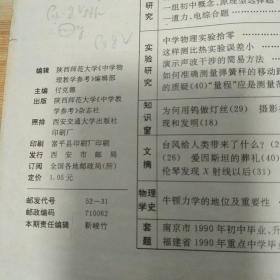 编辑 陕西师范大学《中学物
理教学参考》编辑部
主编 付克德
出版 陕西师范大学《中学教
学参考》杂志社
照排 西安交通大学出版社
印刷厂
印刷 富平县印刷厂印刷
发行 西安市邮局
订阅 全国各地邮政局(所)
定价 1.05元
邮发代号 52—31
邮政编码 710062
本期责任编辑 靳峻竹
研究
一道力、电综合题
实验研究
中学物理实验拾零
这样测比热实验误差小
演示声波干涉的简易方法
如何准确测量弹簧秤的移动距
的质疑(40)“量程”应是测量范
知识窗
为何用钨做灯丝(29) 摄影
现和发明(18)
文摘
台风给人类带来了什么?(2
(26) 爱因斯坦的葬礼(40)
伦琴发现X射线以后(31)
物理学史
牛顿力学的地位及重要性
套题
南京市1990年初中毕业、升
福建省1990年重点中学毕业